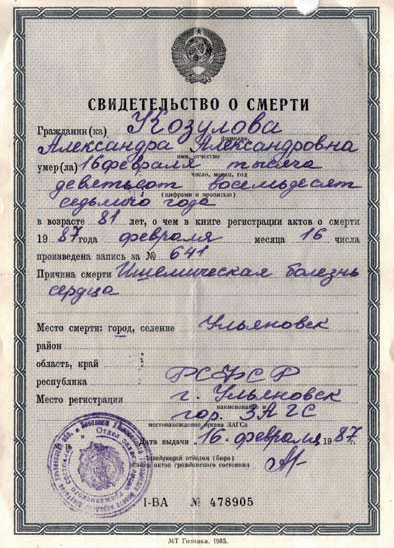 СВИДЕТЕЛЬСТВО О СМЕРТИ
Гражданин(ка) Козулова
фамилия,
Александра Александровна
имя, отчество
умер(ла) 16 февраля тысяча
число, месяц, год
девятьсот восемьдесят
(цифрами и прописью)
седьмого года
в возрасте 81 лет, о чем в книге регистрации актов о смерти
19 87 года февраля месяца 16 числа
произведена запись за № 641
Причина смерти Ишемическая болезнь
сердца
Место смерти: город, селение Ульяновск
район
область, край
республика РСФСР
Место регистрации г. Ульяновск
наименование и
гор. ЗАГС
местонахождение органа ЗАГСа
Дата выдачи 16 февраля 1987 г.
Заведующий отделом (бюро)
записи актов гражданского состояния
I-ВА № 478905
МТ Гознака. 1985.